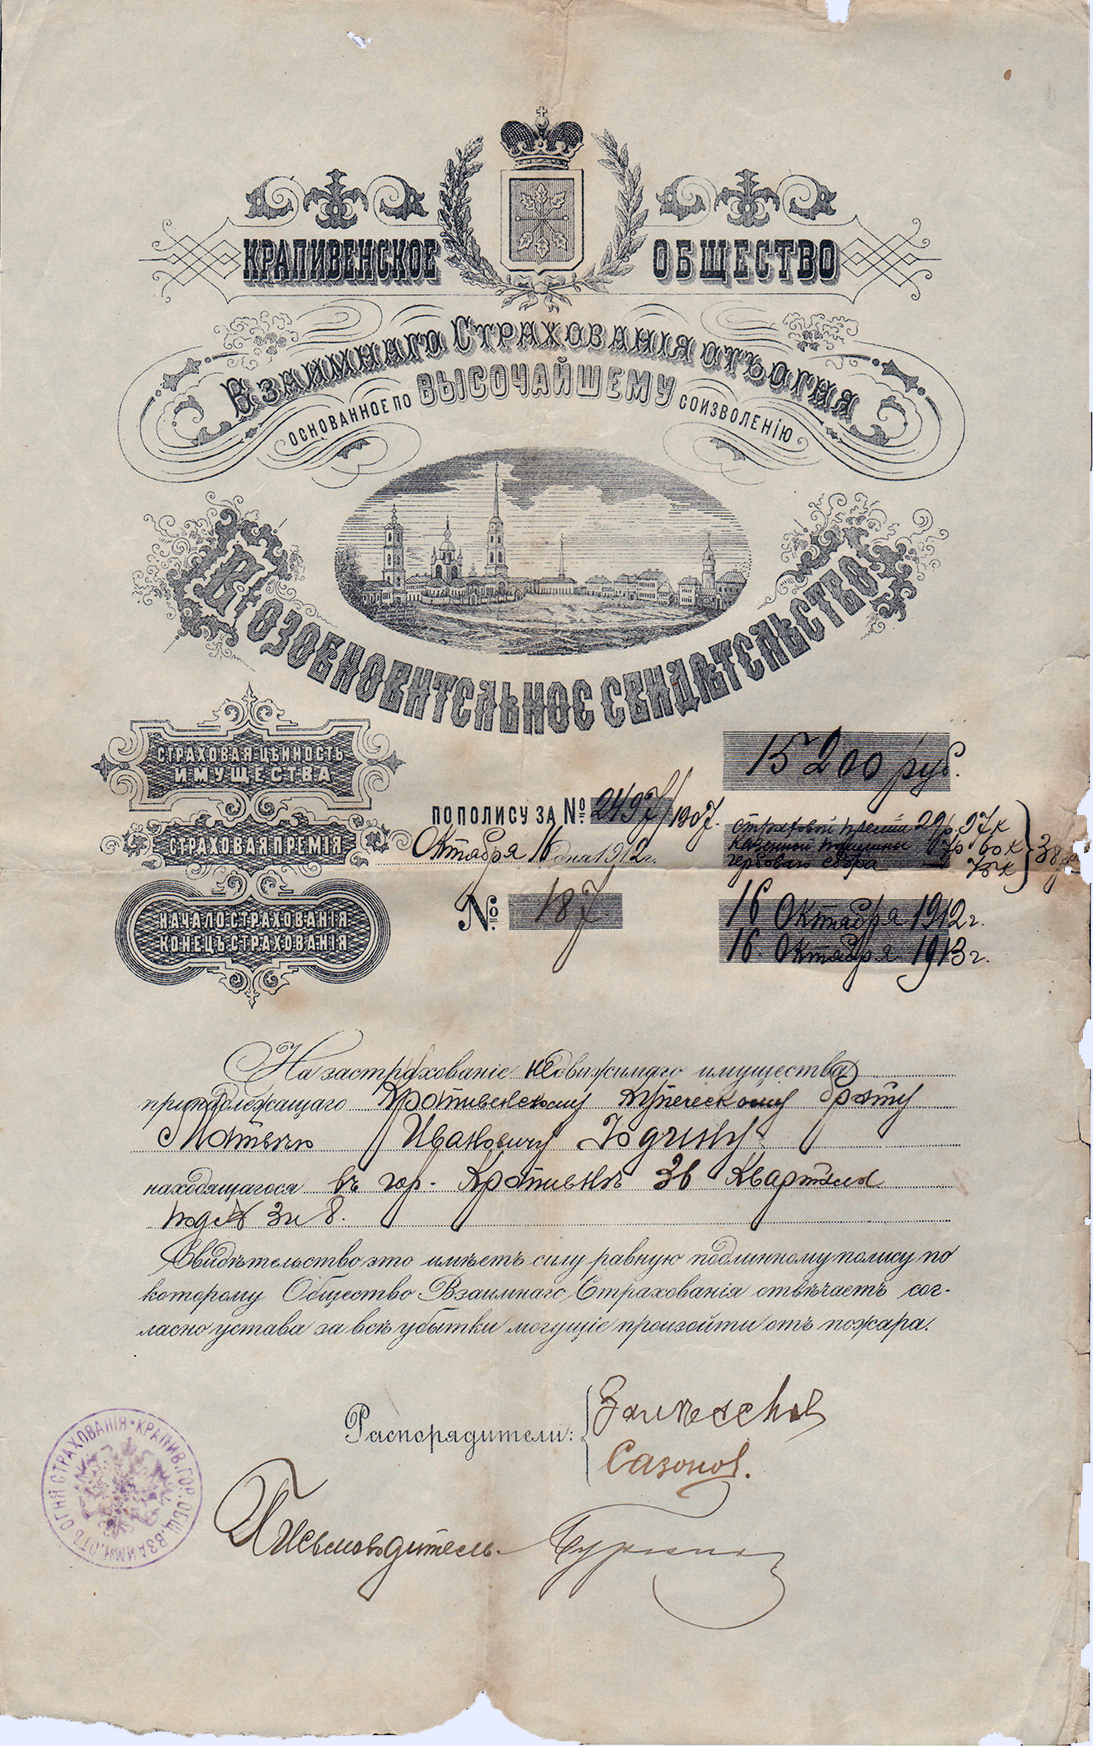 КРАПИВЕНСКОЕ ОБЩЕСТВО
ВЗАИМНАГО СТРАХОВАНІЯ ОТЪ ОГНЯ
ОСНОВАННОЕ ПО ВЫСОЧАЙШЕМУ СОИЗВОЛЕНІЮ
ВОЗОБНОВИТЕЛЬНОЕ СВИДѢТЕЛЬСТВО
СТРАХОВАЯ ЦѢННОСТЬ
ИМУЩЕСТВА
15200 руб.
ПО ПОЛИСУ ЗА №: 2497/1907.
СТРАХОВАЯ ПРЕМІЯ
Октября 16 дня 1912 г.
страховой преміи 29 р. 97 к
казенной пошлины 60 к
гербоваго сбора 75 к
38 р
НАЧАЛО СТРАХОВАНІЯ
КОНЕЦЪ СТРАХОВАНІЯ
№. 187
16 Октября 1912 г.
16. Октября 1913 г.
На застрахованіе недвижимаго имущества
принадлежащаго Крапивенскому купеческому брату
Матвѣю Ивановичу Юдину
находящагося въ гор. Крапивнѣ 36 квартала
под № 3 и 8.
Свидѣтельство это имѣетъ силу равную подлинному полису по
которому Общество Взаимнаго Страхованія отвѣчаетъ сог-
ласно устава за всѣ убытки могущіе произойти отъ пожара.
Распорядители:
Сазонов.
Письмоводитель
КРАПИВ. ГОР. ОБЩ. ВЗАИМН. ОТЪ ОГНЯ СТРАХОВАНІЯ